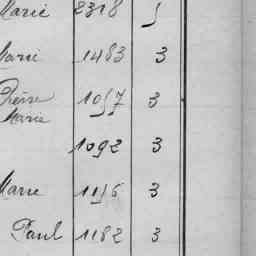 Marie 2318 5
Marie 1483 3
Pierre 1057 3
Marie
1092 3
Marie 1156 3
Paul 1182 3